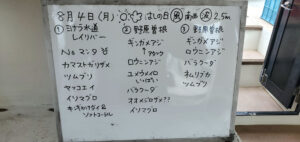 8月4日(月) はしの日 風 南西 波 2.5m
① ヨナラ水道
レイリバー
No マンタ
カマストガリザメ
ツムブリ
マッコエイ
イソマグロ
② 野原曽根
ギンガメアジ
↑アタック
ロウニンアジ
ユメウメイロ
いっぱい
バラクーダ
オオメジロザメ??
イソマグロ
③ 野原曽根
ギンガメアジ
ロウニンアジ
バラクーダ
ネムリブカ
ツムブリ